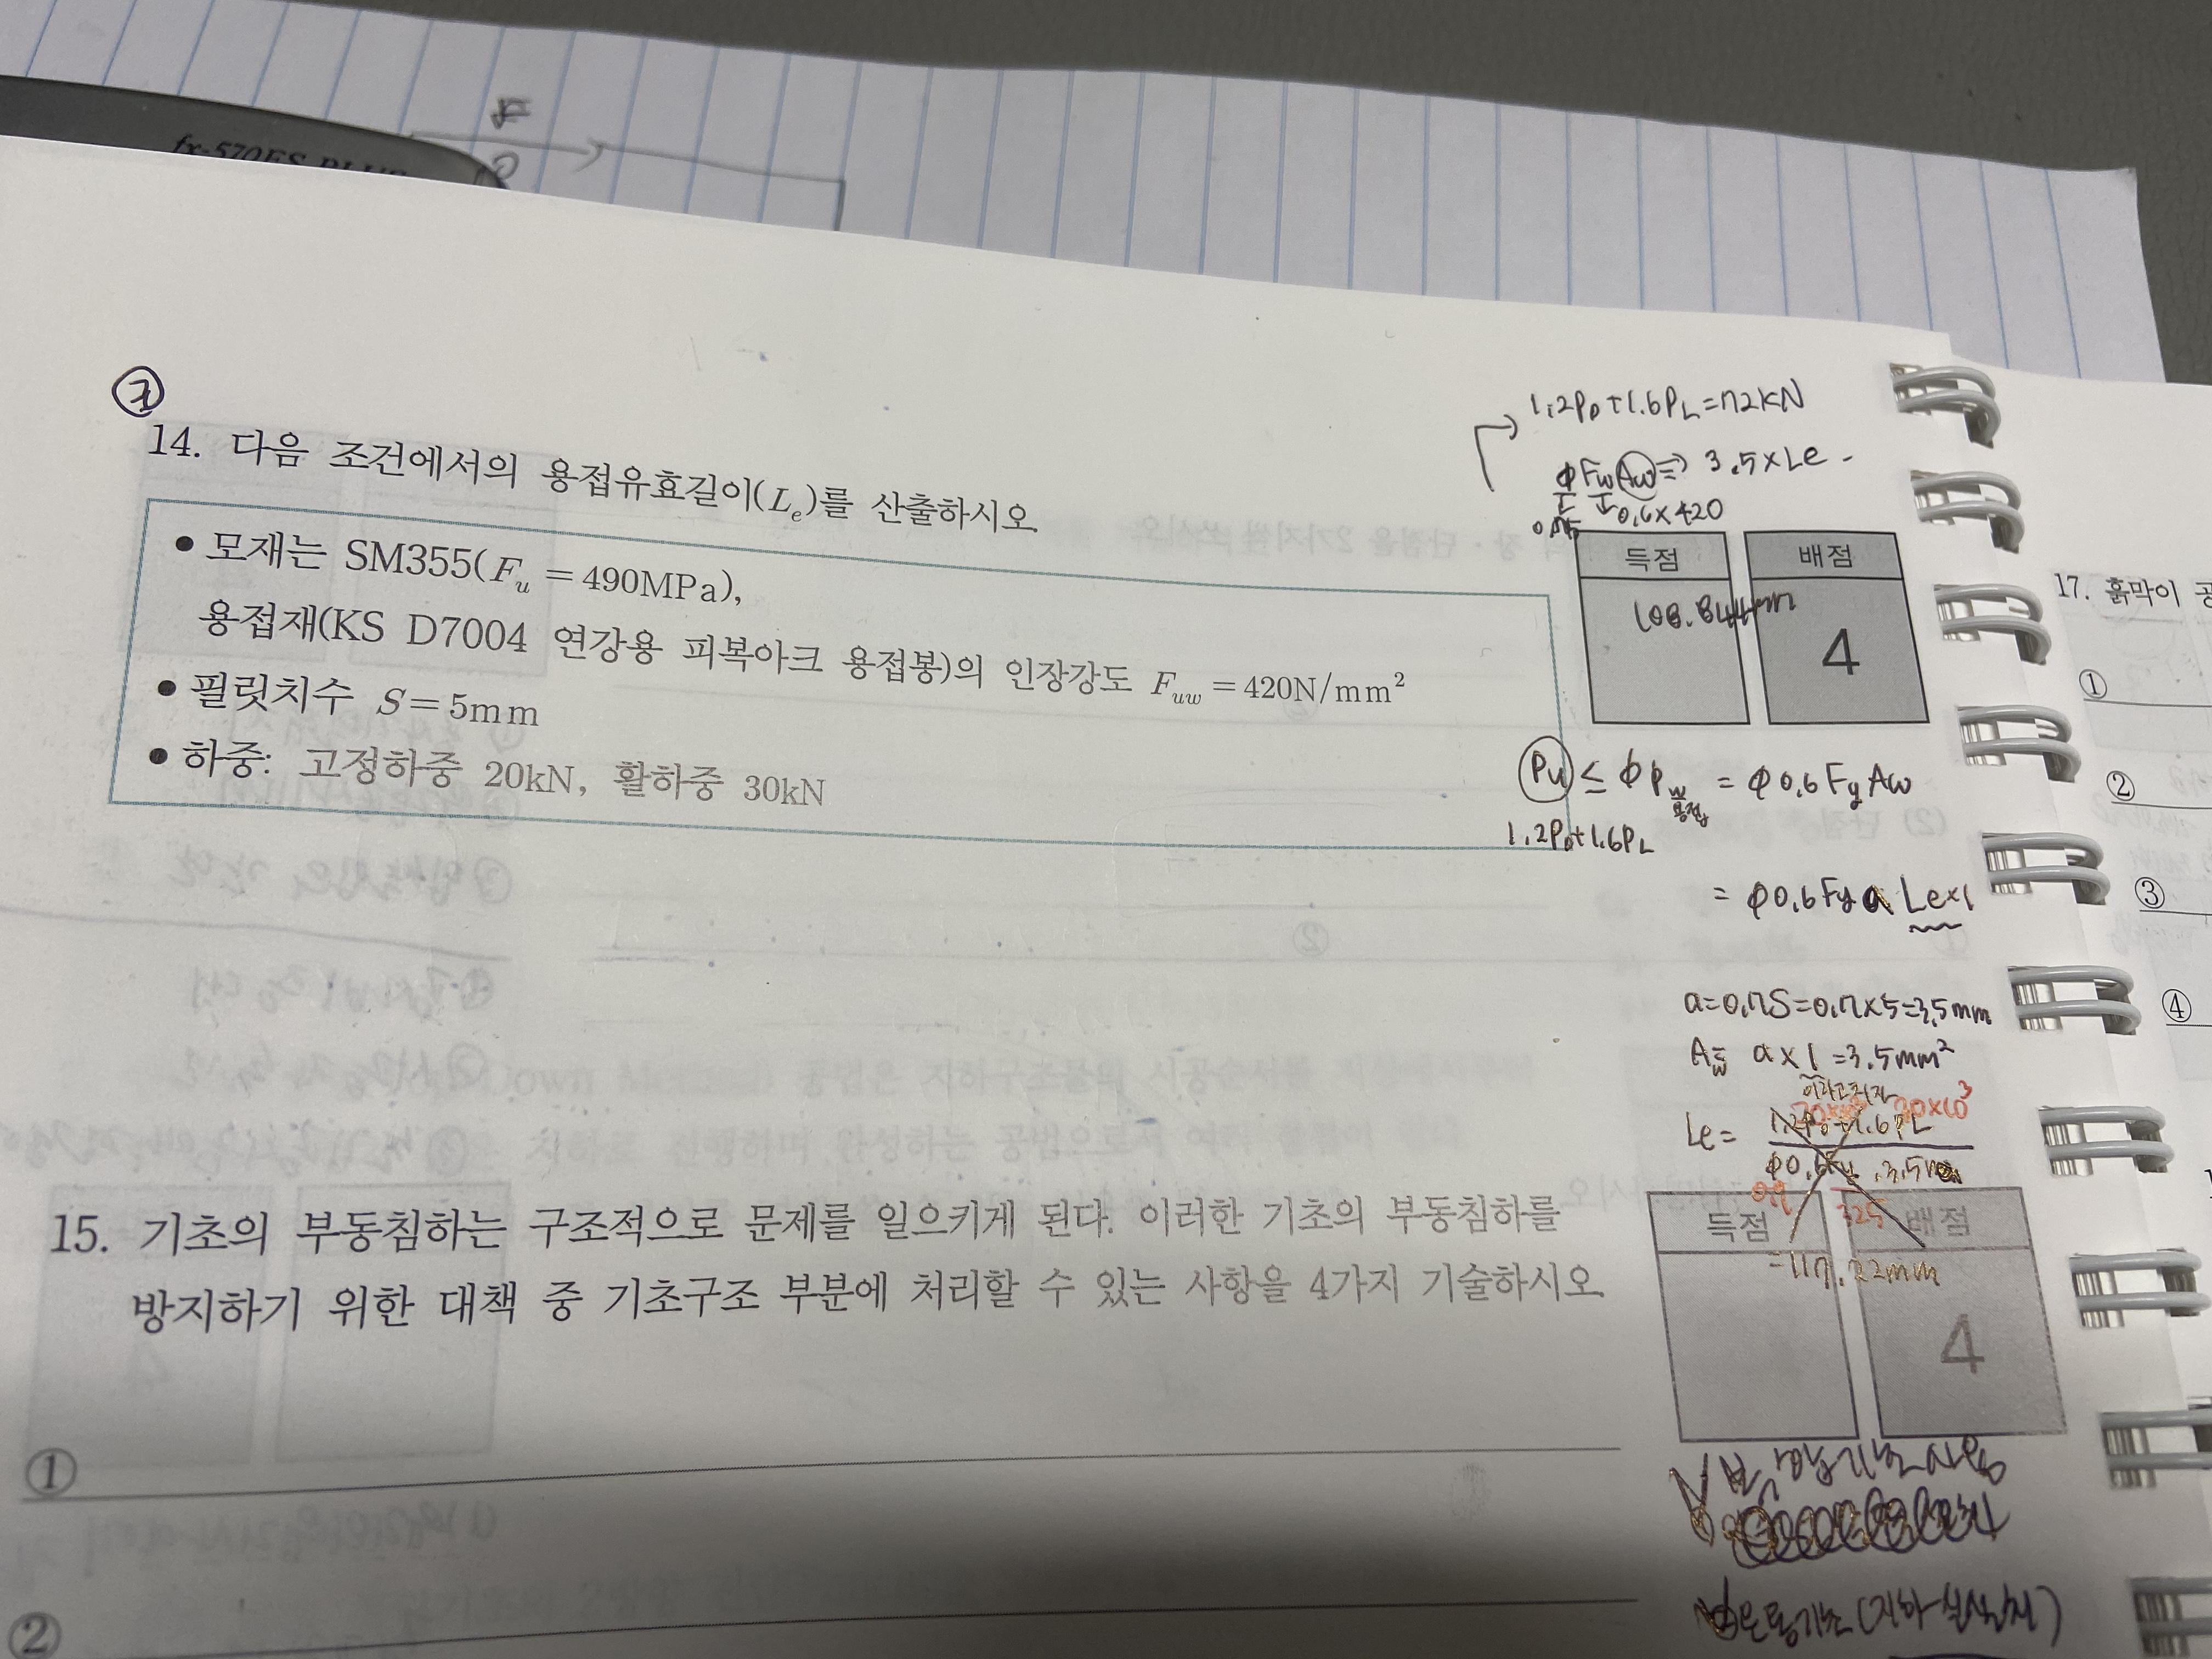 fx-570ES PLUS
F
14. 다음 조건에서의 용접유효길이(Le)를 산출하시오.
• 모재는 SM355(Fu = 490MPa),
용접재(KS D7004 연강용 피복아크 용접봉)의 인장강도 Fuw = 420N/mm²
• 필릿치수 S = 5mm
• 하중: 고정하중 20kN, 활하중 30kN
1.2PD+1.6PL=72kN
ϕFwAw ⇒ 3.5×Le
0.6×420
득점 배점
108.844mm
4
Pu ≤ ϕPw = ϕ0.6FyAw
용접
1.2PD+1.6PL
= ϕ0.6Fy a Le×1
a=0.7S=0.7×5=3.5mm
Aw= a×1 =3.5mm²
30×10³
Le= 1.2PD+1.6PL
ϕ0.6Fy .3.5
0.9 325
=117.22mm
15. 기초의 부동침하는 구조적으로 문제를 일으키게 된다. 이러한 기초의 부동침하를
방지하기 위한 대책 중 기초구조 부분에 처리할 수 있는 사항을 4가지 기술하시오.
득점 배점
4
①
②
17. 흙막이
①
②
③
④